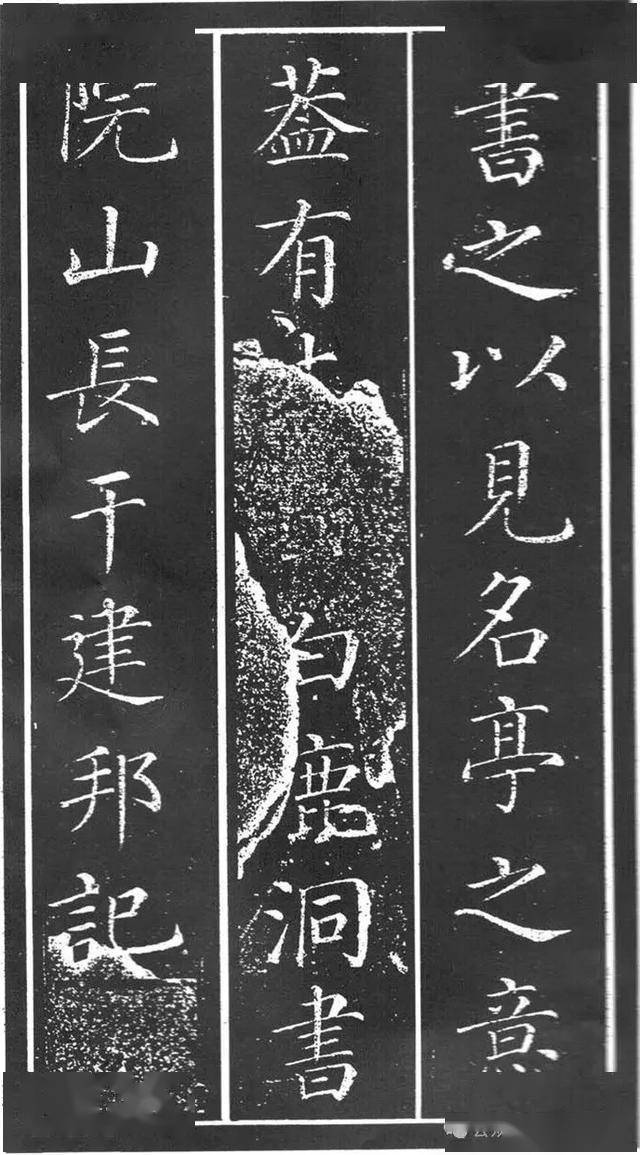 書之以見名亭之意
葢有 白鹿洞書
院山長干建邦記